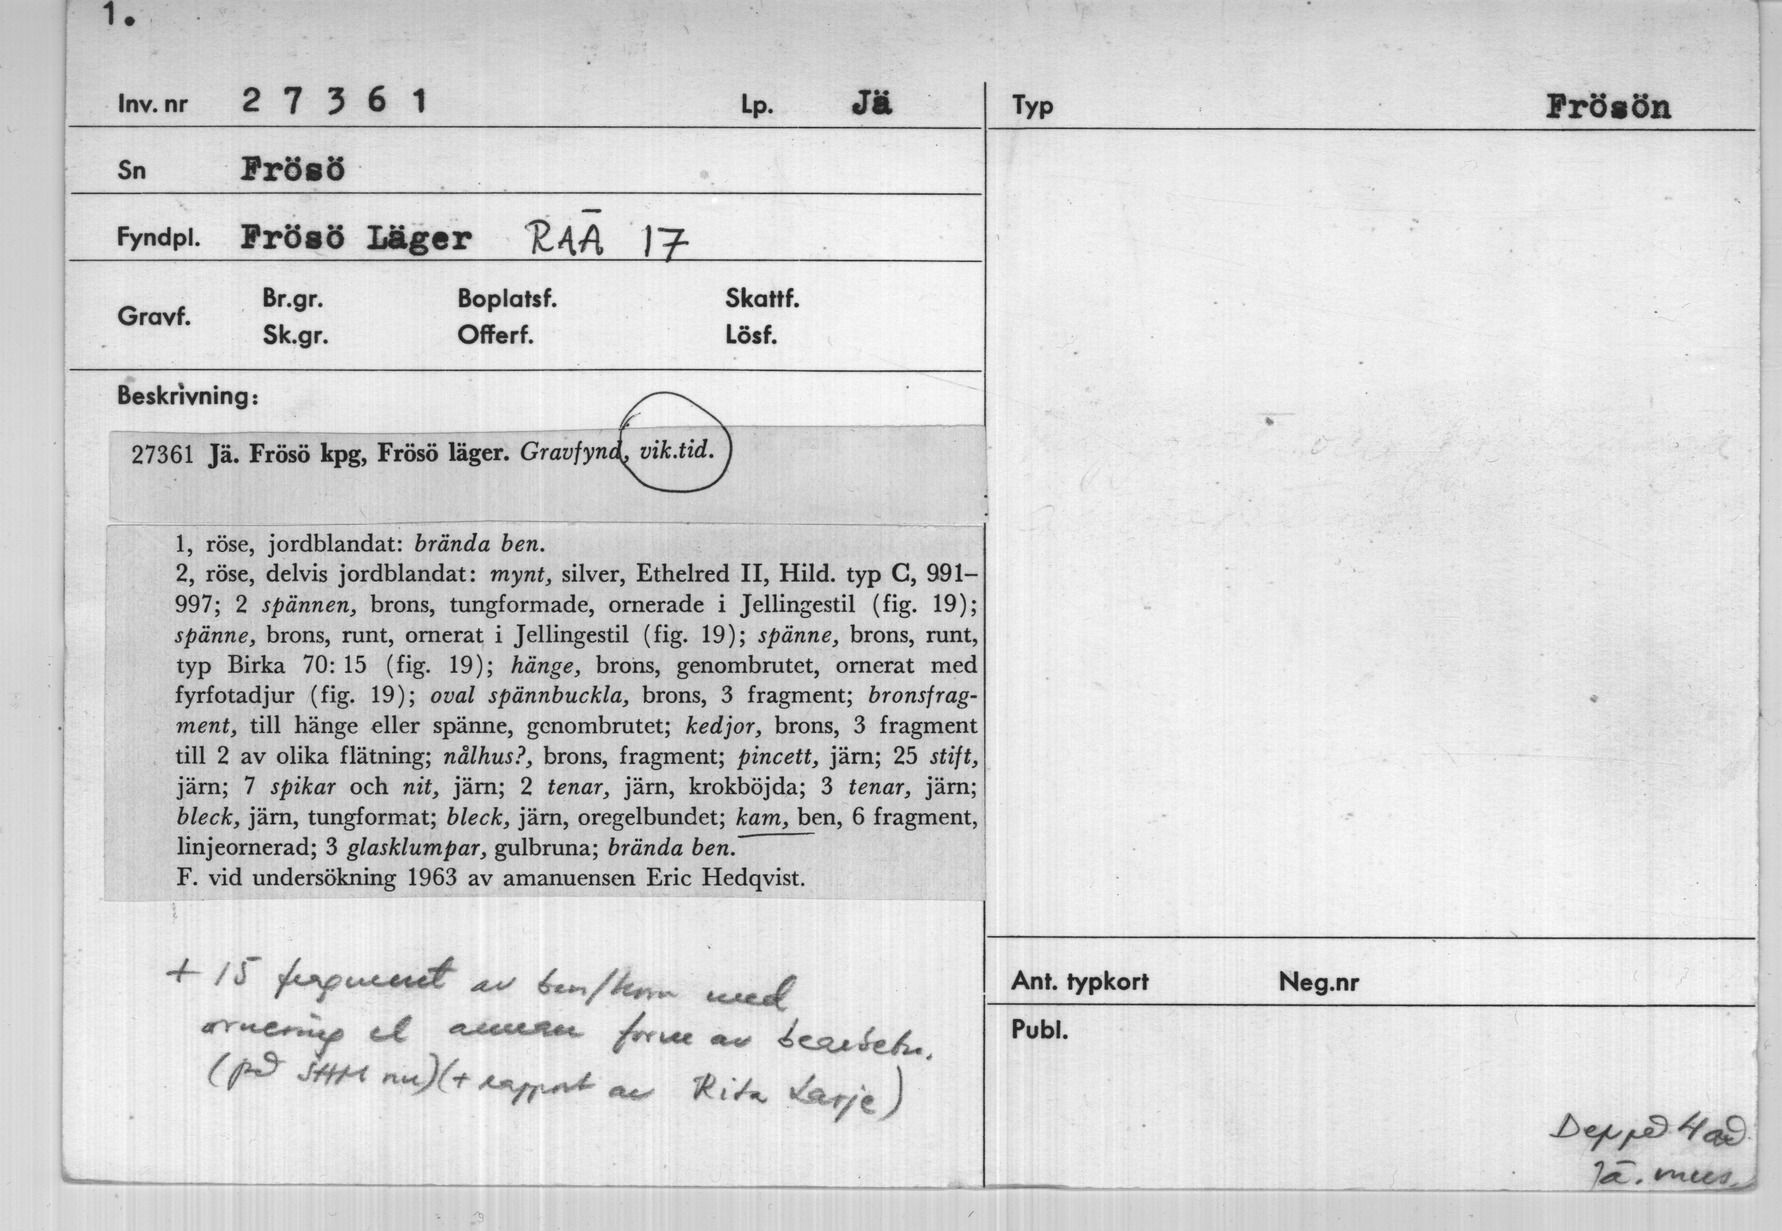 1.
Inv. nr 2 7 3 6 1 Lp. Jä
Typ Frösön
Sn Frösö
Fyndpl. Frösö Läger RAÄ 17
Gravf. Br.gr. Boplatsf. Skattf.
Sk.gr. Offerf. Lösf.
Beskrivning:
27361 Jä. Frösö kpg, Frösö läger. Gravfynd, vik.tid.
1, röse, jordblandat: brända ben.
2, röse, delvis jordblandat: mynt, silver, Ethelred II, Hild. typ C, 991–
997; 2 spännen, brons, tungformade, ornerade i Jellingestil (fig. 19);
spänne, brons, runt, ornerat i Jellingestil (fig. 19); spänne, brons, runt,
typ Birka 70: 15 (fig. 19); hänge, brons, genombrutet, ornerat med
fyrfotadjur (fig. 19); oval spännbuckla, brons, 3 fragment; bronsfrag-
ment, till hänge eller spänne, genombrutet; kedjor, brons, 3 fragment
till 2 av olika flätning; nålhus?, brons, fragment; pincett, järn; 25 stift,
järn; 7 spikar och nit, järn; 2 tenar, järn, krokböjda; 3 tenar, järn;
bleck, järn, tungformat; bleck, järn, oregelbundet; kam, ben, 6 fragment,
linjeornerad; 3 glasklumpar, gulbruna; brända ben.
F. vid undersökning 1963 av amanuensen Eric Hedqvist.
+ 15 fragment av ben/horn med
ornering el annan form av bearbetn.
(på SHM nu) (+ rapport av Rita Larje)
Ant. typkort Neg.nr
Publ.
Jä. mus.